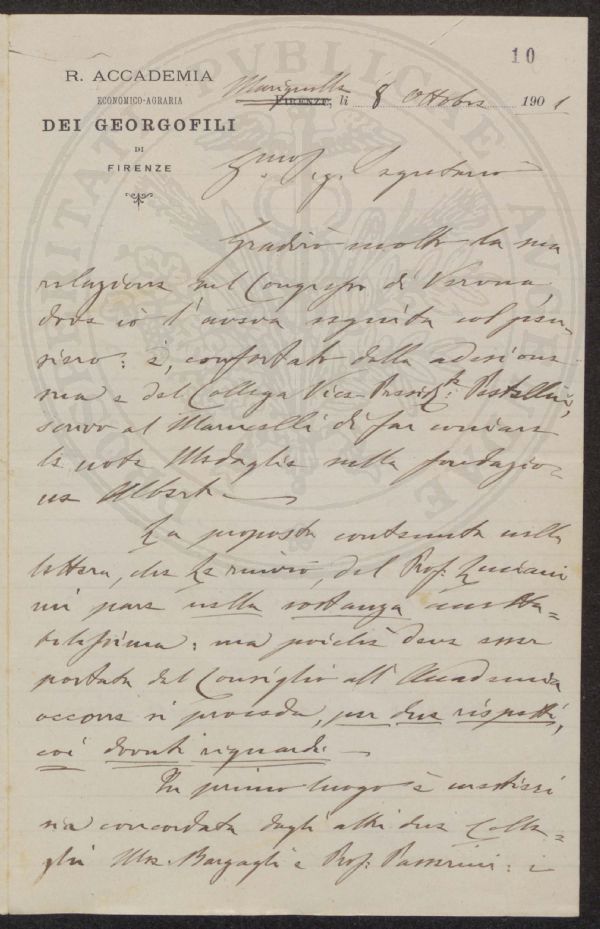 10
R. ACCADEMIA
ECONOMICO-AGRARIA
DEI GEORGOFILI
DI
FIRENZE
Marignolle
FIRENZE, li 8 Ottobre 1901
Sig. Segretario
Gradirò molto la sua
relazione sul Congresso di Verona,
dove io l'aveva seguita col pen-
siero: e, confortato dalla adesione
sua e del Collega Vice-Presid.te Pestellini,
scrivo al Marucelli di far coniare
le note Medaglie sulla fondazio-
ne Alberti
La proposta contenuta nella
lettera, che Le rinvio, del Prof. Luciani
mi pare nella sostanza accetta-
bilissima: ma poichè deve esser
portata dal Consiglio all'Accademia
occorre si proceda, per due rispetti,
coi dovuti riguardi.
In primo luogo è
sia concordata dagli altri due Colle-
ghi Mse. Bargagli e Prof. Passerini: e